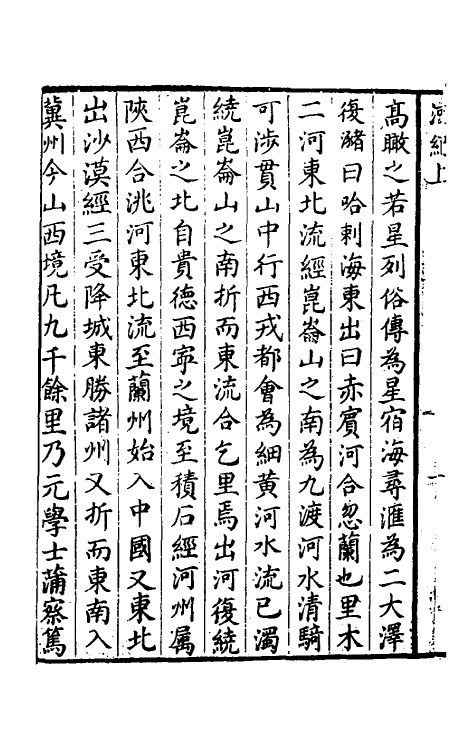 河紀上
高瞰之若星列俗傳為星宿海尋滙為二大澤
復瀦曰哈剌海東出曰赤賓河合忽蘭也里木
二河東北流經崑崙山之南為九渡河水清騎
可涉貫山中行西戎都會為細黃河水流已濁
繞崑崙山之南折而東流合乞里馬出河復繞
崑崙之北自貴德西寧之境至積石經河州属
陜西合洮河東北流至蘭州始入中國又東北
出沙漠經三受降城東勝諸州又折而東南入
冀州今山西境凡九千餘里乃元學士蒲察篤